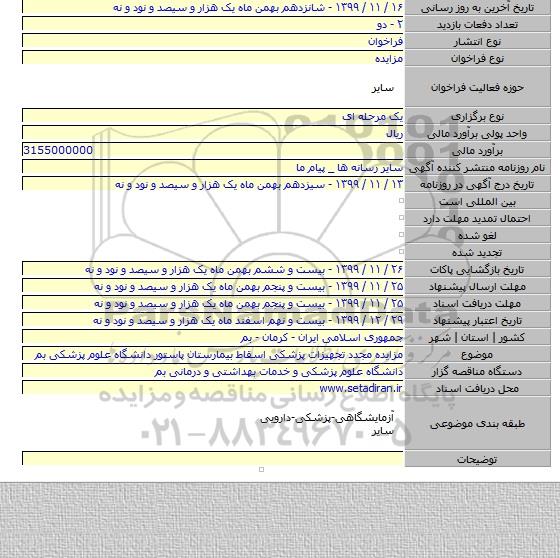 تاریخ آخرین به روز رسانی ۱۶ / ۱۱ / ۱۳۹۹ - شانزدهم بهمن ماه یک هزار و سیصد و نود و نه
تعداد دفعات بازدید ۲ - دو
نوع انتشار فراخوان
نوع فراخوان مزایده
حوزه فعالیت فراخوان سایر
نوع برگزاری یک مرحله ای
واحد پولی برآورد مالی ریال
برآورد مالی 3155000000
نام روزنامه منتشر کننده آگهی سایر رسانه ها _ پیام ما
تاریخ درج آگهی در روزنامه ۱۳ / ۱۱ / ۱۳۹۹ - سیزدهم بهمن ماه یک هزار و سیصد و نود و نه
بین المللی است
احتمال تمدید مهلت دارد
لغو شده
تجدید شده
تاریخ بازگشایی پاکات ۲۶ / ۱۱ / ۱۳۹۹ - بیست و ششم بهمن ماه یک هزار و سیصد و نود و نه
مهلت ارسال پیشنهاد ۲۵ / ۱۱ / ۱۳۹۹ - بیست و پنجم بهمن ماه یک هزار و سیصد و نود و نه
مهلت دریافت اسناد ۲۵ / ۱۱ / ۱۳۹۹ - بیست و پنجم بهمن ماه یک هزار و سیصد و نود و نه
تاریخ اعتبار پیشنهاد ۲۹ / ۱۲ / ۱۳۹۹ - بیست و نهم اسفند ماه یک هزار و سیصد و نود و نه
کشور | استان | شهر جمهوری اسلامی ایران - کرمان - بم
موضوع مزایده مجدد تجهیزات پزشکی اسقاط بیمارستان پاستور دانشگاه علوم پزشکی بم
دستگاه مناقصه گزار دانشگاه علوم پزشکی و خدمات بهداشتی و درمانی بم
محل دریافت اسناد www.setadiran.ir
پایگاه اطلاع رسانی مناقصه و مزایده
طبقه بندی موضوعی آزمایشگاهی-پزشکی-دارویی
سایر
۰۲۱-۸۸۳۴۹۶۷۰-۵
توضیحات